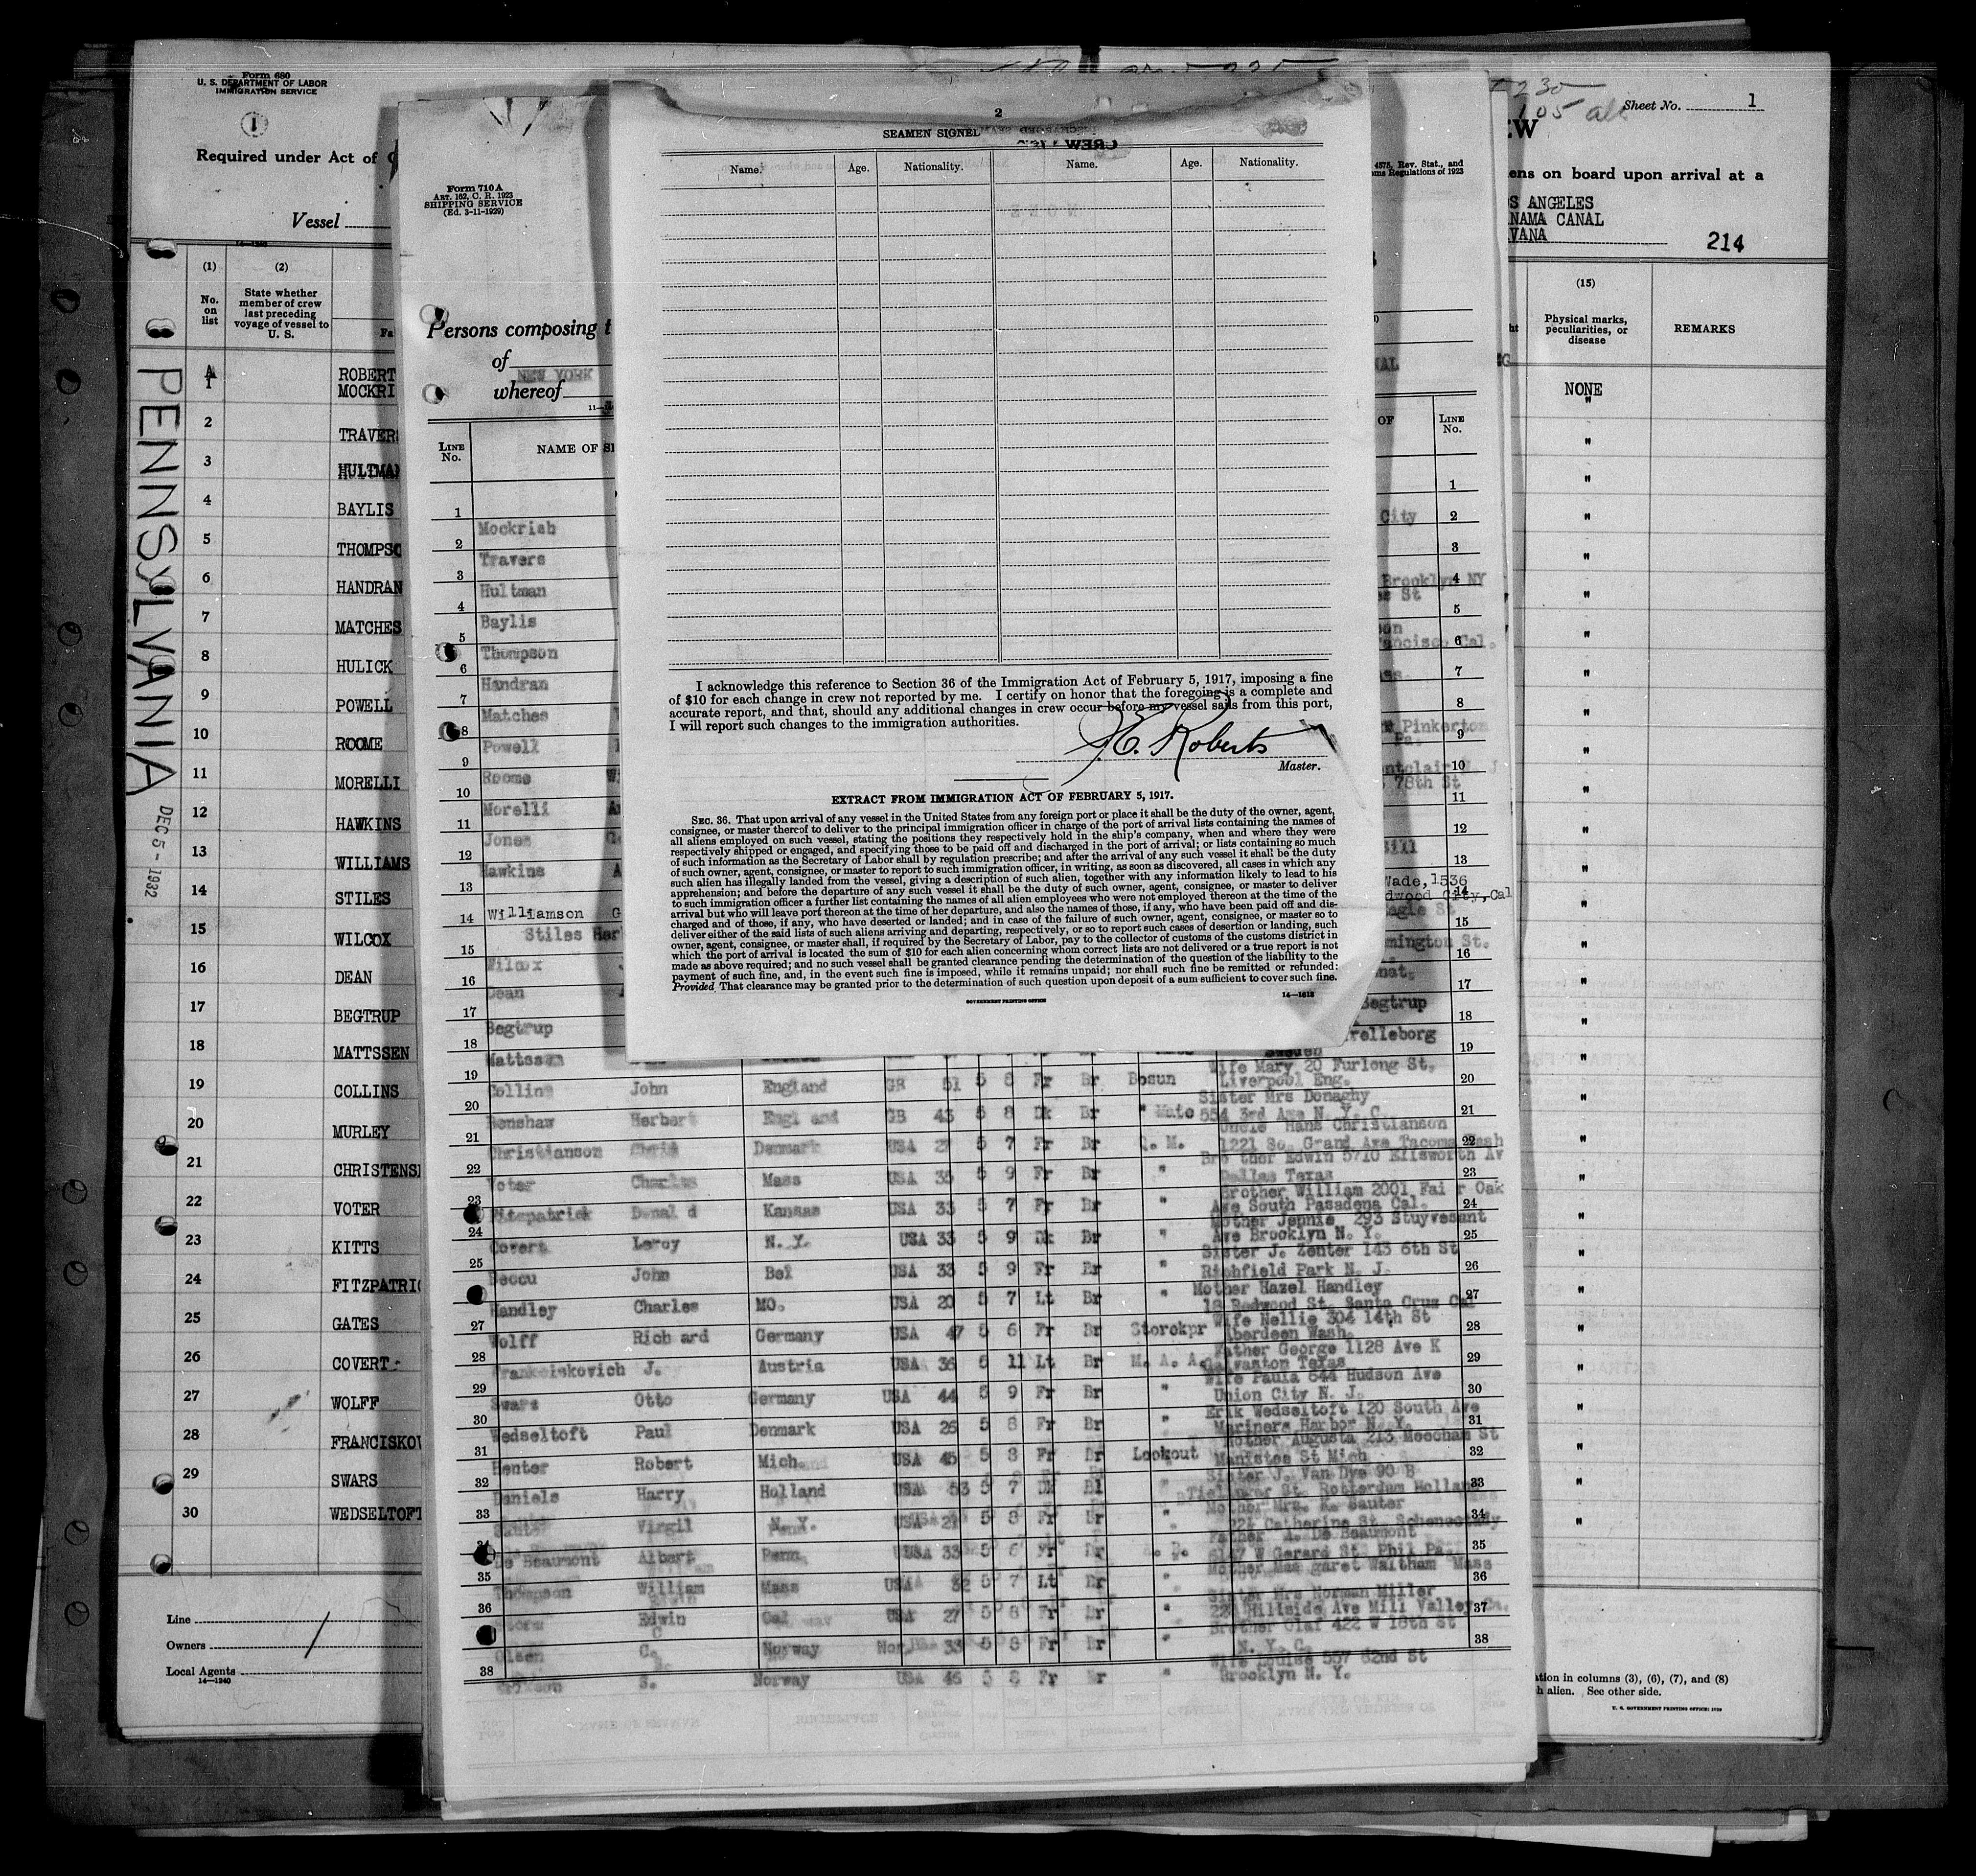 Form 680
U. S. DEPARTMENT OF LABOR
IMMIGRATION SERVICE
1
Required under Act of
Vessel
14—1240
(1)
(2)
No.
on
list
State whether
member of crew
last preceding
voyage of vessel to
U. S.
PENNSYLVANIA
DEC 5 - 1932
A ROBERT
1 MOCKRI
2 TRAVERS
3 HULTMAN
4 BAYLIS
5 THOMPSO
6 HANDRAN
7 MATCHES
8 HULICK
9 POWELL
10 ROOME
11 MORELLI
12 HAWKINS
13 WILLIAMS
14 STILES
15 WILCOX
16 DEAN
17 BEGTRUP
18 MATTSSEN
19 COLLINS
20 MURLEY
21 CHRISTENS
22 VOTER
23 KITTS
24 FITZPATRIC
25 GATES
26 COVERT
27 WOLFF
28 FRANCISKOV
29 SWARS
30 WEDSELTOFT
Line
Owners
Local Agents
14—1240
Form 710 A
ART. 162, C. R. 1923
SHIPPING SERVICE
(Ed. 3-11-1929)
Persons composing t
of
NEW YORK
whereof
LINE
No.
NAME OF S
1
Mockrish
2
Travers
3
Hultman
4
Baylis
5
Thompson
6
Handran
7
Matches
8
Powell
9
Roome
10
Morelli
11
Jones
12
Hawkins
13
14 Williamson G
Stiles Her
15
Wilcox
16
Dean
17
Begtrup
18
Mattssen
2
SEAMEN SIGNED
Name. Age. Nationality. Name. Age. Nationality.
I acknowledge this reference to Section 36 of the Immigration Act of February 5, 1917, imposing a fine
of $10 for each change in crew not reported by me. I certify on honor that the foregoing is a complete and
accurate report, and that, should any additional changes in crew occur before my vessel sails from this port,
I will report such changes to the immigration authorities.
Roberts
Master.
EXTRACT FROM IMMIGRATION ACT OF FEBRUARY 5, 1917.
SEC. 36. That upon arrival of any vessel in the United States from any foreign port or place it shall be the duty of the owner, agent,
consignee, or master thereof to deliver to the principal immigration officer in charge of the port of arrival lists containing the names of
all aliens employed on such vessel, stating the positions they respectively hold in the ship's company, when and where they were
respectively shipped or engaged, and specifying those to be paid off and discharged in the port of arrival; or lists containing so much
of such information as the Secretary of Labor shall by regulation prescribe; and after the arrival of any such vessel it shall be the duty
of such owner, agent, consignee, or master to report to such immigration officer, in writing, as soon as discovered, all cases in which any
such alien has illegally landed from the vessel, giving a description of such alien, together with any information likely to lead to his
apprehension; and before the departure of any such vessel it shall be the duty of such owner, agent, consignee, or master to deliver
to such immigration officer a further list containing the names of all alien employees who were not employed thereon at the time of the
arrival but who will leave port thereon at the time of her departure, and also the names of those, if any, who have been paid off and dis-
charged and of those, if any, who have deserted or landed; and in case of the failure of such owner, agent, consignee, or master so to
deliver either of the said lists of such aliens arriving and departing, respectively, or so to report such cases of desertion or landing, such
owner, agent, consignee, or master shall, if required by the Secretary of Labor, pay to the collector of customs of the customs district in
which the port of arrival is located the sum of $10 for each alien concerning whom correct lists are not delivered or a true report is not
made as above required; and no such vessel shall be granted clearance pending the determination of the question of the liability to the
payment of such fine, and, in the event such fine is imposed, while it remains unpaid; nor shall such fine be remitted or refunded:
Provided, That clearance may be granted prior to the determination of such question upon deposit of a sum sufficient to cover such fine.
GOVERNMENT PRINTING OFFICE
14—1613
4575, Rev. Stat., and
ms Regulations of 1923
OF
LINE
No.
1
City 2
3
Brooklyn NY 4
St 5
ancisco Cal. 6
7
8
Pinkerton
Pa. 9
ntclair N. J 10
78th St
11
12
13
Wade, 1536
dwood City, Cal 14
Eagle St 15
mington St. 16
17
Begtrup 18
relleborg
Sweden 19
Wife Mary 20 Furlong St,
19 Collins John England GB 51 5 8 Fr Br Bosun Liverpool Eng. 20
Sister Mrs Donaghy
20 Renshaw Herbert England GB 43 5 8 Dk Br " Mate 554 3rd Ave N. Y. C. 21
Uncle Hans Christianson
21 Christianson Chris Denmark USA 27 5 7 Fr Br Q. M. 1221 So. Grand Ave Tacoma Wash 22
Brother Edwin 5710 Ellsworth Av
22 Voter Charles Mass USA 35 5 9 Fr Br " Dallas Texas 23
Brother William 2001 Fair Oak
23 Fitzpatrick Donald Kansas USA 33 5 7 Fr Br " Ave South Pasadena Cal. 24
Mother Jennie 293 Stuyvesant
24 Covert Leroy N. Y. USA 33 5 9 Dk Br " Ave Brooklyn N. Y. 25
Sister J. Zenter 143 6th St
25 Beccu John Bel USA 33 5 9 Fr Br " Richfield Park N. J. 26
Mother Hazel Handley
Handley Charles MO. USA 20 5 7 Lt Br " 18 Redwood St. Santa Cruz Cal 27
Wife Nellie 304 14th St
27 Wolff Richard Germany USA 47 5 6 Fr Br Storekpr Aberdeen Wash. 28
Father George 1128 Ave K
28 Franciskovich J. Austria USA 36 5 11 Lt Br M. A. A. Galvaston Texas 29
Wife Paula 644 Hudson Ave
29 Swars Otto Germany USA 44 5 9 Fr Br " Union City N. J. 30
Erik Wedseltoft 120 South Ave
30 Wedseltoft Paul Denmark USA 26 5 8 Fr Br " Mariners Harbor N. Y. 31
Mother Augusta 213 Meecham St
31 Henter Robert Mich USA 45 5 8 Fr Br Lookout Manistee St Mich 32
Sister J. Van Dye 90 B
32 Daniels Harry Holland USA 53 5 7 Dk Bl " St. Rotterdam Holland 33
Mother Mrs. K. Sauter
33 Virgil N. Y. USA 5 8 Fr Br " 221 Catherine St. Schenectady 34
Father A. De Beaumont
34 De Beaumont Albert Penn USA 33 5 6 Fr Br 6147 W Gerard St Phil Pa 35
Mother Margaret Waltham Mass
35 Thompson William Mass USA 32 5 7 Lt Br " 36
Sister Mrs Norman Miller
36 Edwin Cal USA 27 5 8 Fr Br " Hillside Ave Mill Valley Ca. 37
Brother Olaf 422 W 18th St
Olsen C. Norway Nor 33 5 8 Fr Br " N. Y. C. 38
Wife Louise 557 62nd St
38 S. Norway USA 46 5 8 Fr Br " Brooklyn N. Y.
230
105
Sheet No. 1
EW
ens on board upon arrival at a
S ANGELES
NAMA CANAL
VANA
214
(15)
Physical marks,
peculiarities, or
disease
REMARKS
NONE
"
ation in columns (3), (6), (7), and (8)
h alien. See other side.
U. S. GOVERNMENT PRINTING OFFICE